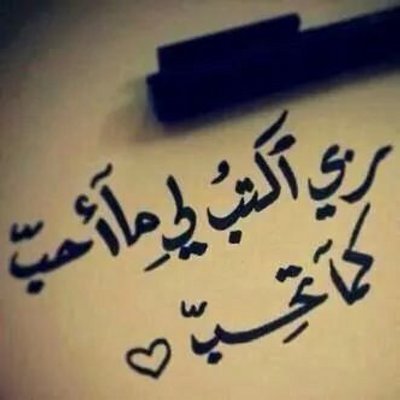 ربي أكتبُ لي ِمآ أحبّ
كمآ تحبّ ♡